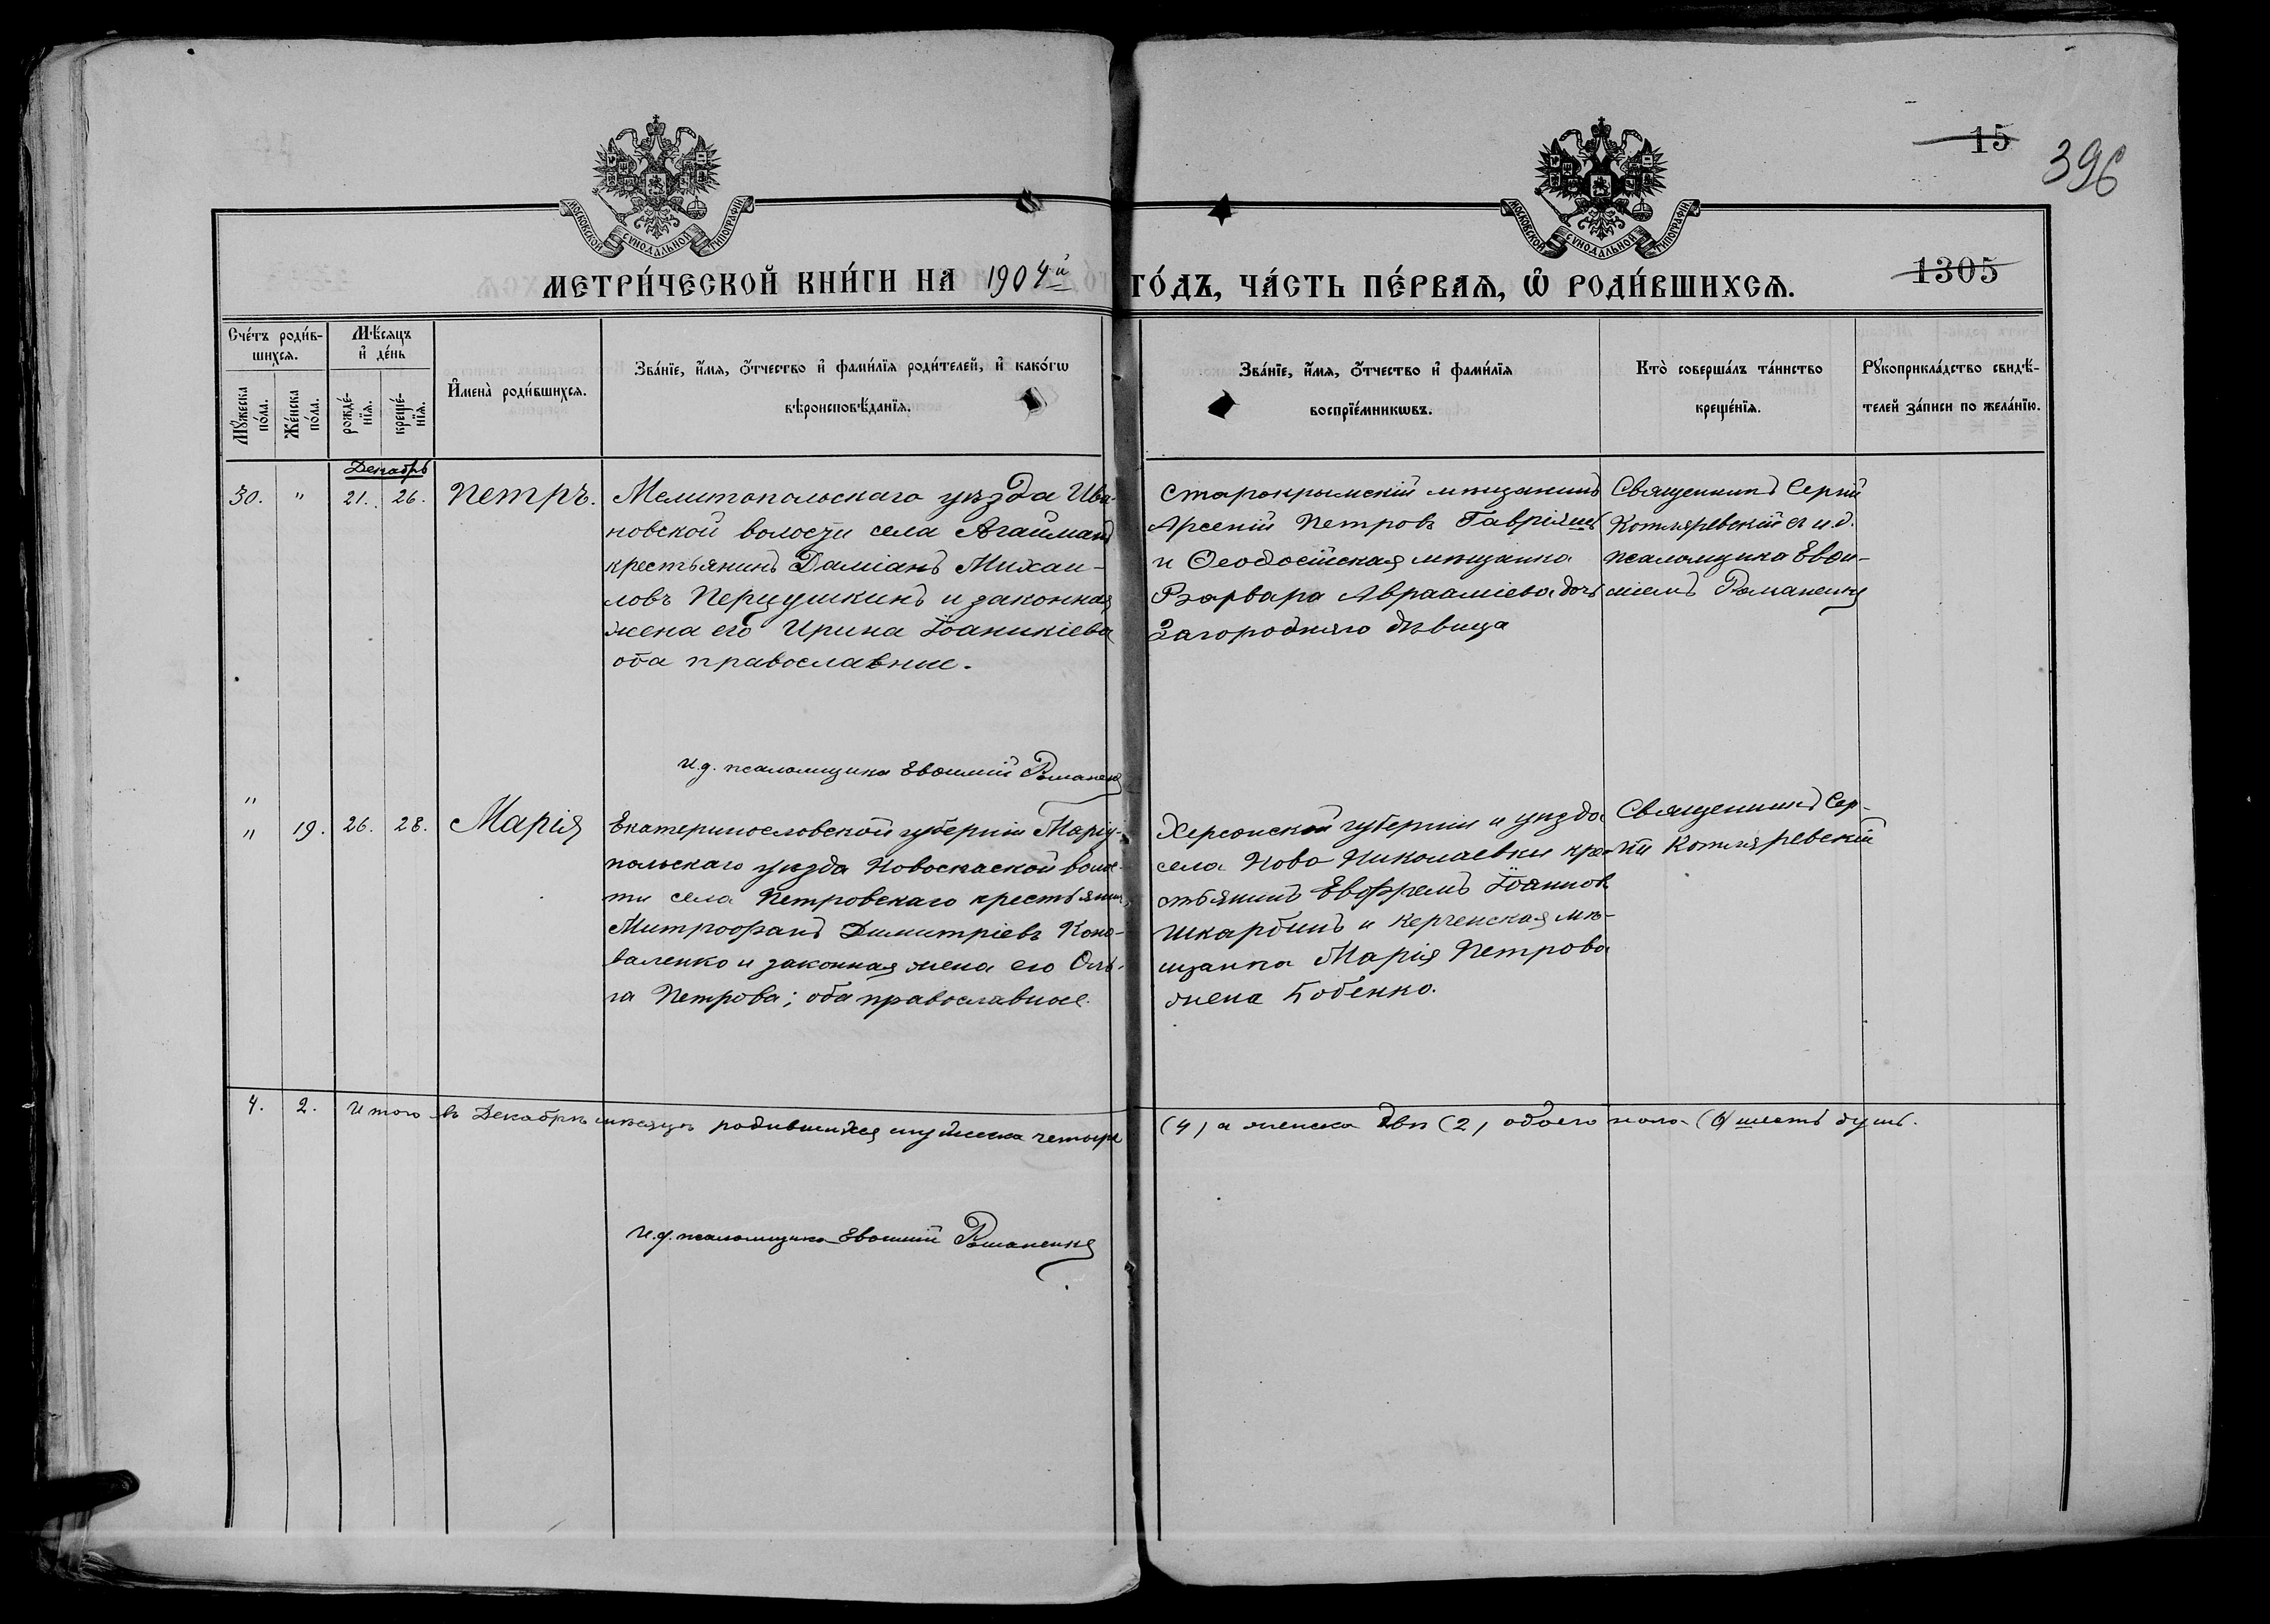 15
396
МОСКОВСКОЙ СУНОДАЛЬНОЙ ТИПОГРАФІИ
МОСКОВСКОЙ СУНОДАЛЬНОЙ ТИПОГРАФІИ
МЕТРИ́ЧЕСКОЙ КНИ́ГИ НА 1904й ГО́ДЪ, ЧА́СТЬ ПЕ́РВАѦ, Ѡ҆ РОДИ́ВШИХСѦ.
1305
Сче́тъ роди́в-
шихсѧ.
Мꙋ́жеска по́ла.
Же́нска по́ла.
Мѣ́сѧцъ
и҆ де́нь
рожде́-
нїѧ.
креще́-
нїѧ.
И҆мена̀ роди́вшихсѧ.
Зва́нїе, и҆́мѧ, ѻ҆́тчество и҆ фами́лїѧ роди́телей, и҆ како́гѡ
вѣроисповѣ́данїѧ.
Зва́нїе, и҆́мѧ, ѻ҆́тчество и҆ фами́лїѧ
воспрїе́мникѡвъ.
Кто̀ соверша́лъ та́инство
креще́нїѧ.
Рꙋкоприкла́дство свидѣ́-
телей за́писи по жела́нїю.
Декабрь
30. " 21. 26. Петръ.
Мелитопольскаго уѣзда Ива-
новской волости села Агайманъ
крестьянинъ Даміанъ Михаи-
ловъ Перцушкинъ и законная
жена его Ирина Іоаникіева
оба православные.
И.д. псаломщика Евѳимій Романенко
Старокрымскій мѣщанинъ
Арсеній Петровъ
и Ѳеодосійская мѣщанка
Варвара Авраамiева дочь
Загородняго дѣвица
Священникъ Сергій
Котляревскій съ и.д.
псаломщика Евѳи-
міемъ Романенко
"
" 19. 26. 28. Марія
Екатеринославской губерніи Маріу-
польскаго уѣзда Новоспаской волос-
ти села Петровскаго крестьянинъ
Митрофанъ Димитріевъ Коно-
валенко и законная жена его Оль-
га Петрова; оба православные.
Херсонской губерніи и уѣзда
села Ново Николаевки кре-
стьянинъ Евфремъ Іоанновъ
Шкарбинъ и Керченская мѣ-
щанка Марія Петрова
жена Бобенко.
Священникъ Сер-
гій Котляревскій
4. 2. Итого въ Декабрѣ мѣсяцѣ родившихся мужеска четыре (4) а женска двѣ (2) обоего пола (6) шесть душъ.
И.д. псаломщика Евѳимій Романенко